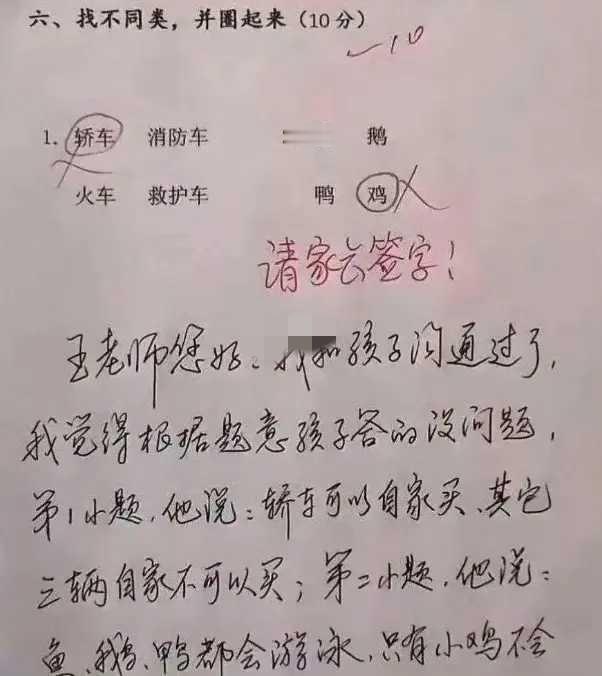 六、找不同类，并圈起来（10分）
-10
1. 轿车 消防车 鹅
火车 救护车 鸭 鸡
请家长签字！
王老师您好、我和孩子沟通过了，
我觉得根据题意孩子答的没问题，
第1小题，他说：轿车可以自家买、其它
三辆自家不可以买；第二小题，他说：
鱼、鹅、鸭都会游泳，只有小鸡不会